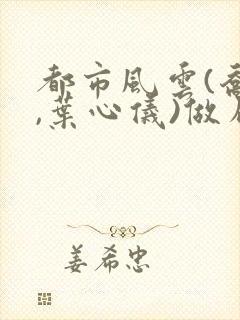 都市風雲(喬
,葉心儀)做
姜希忠